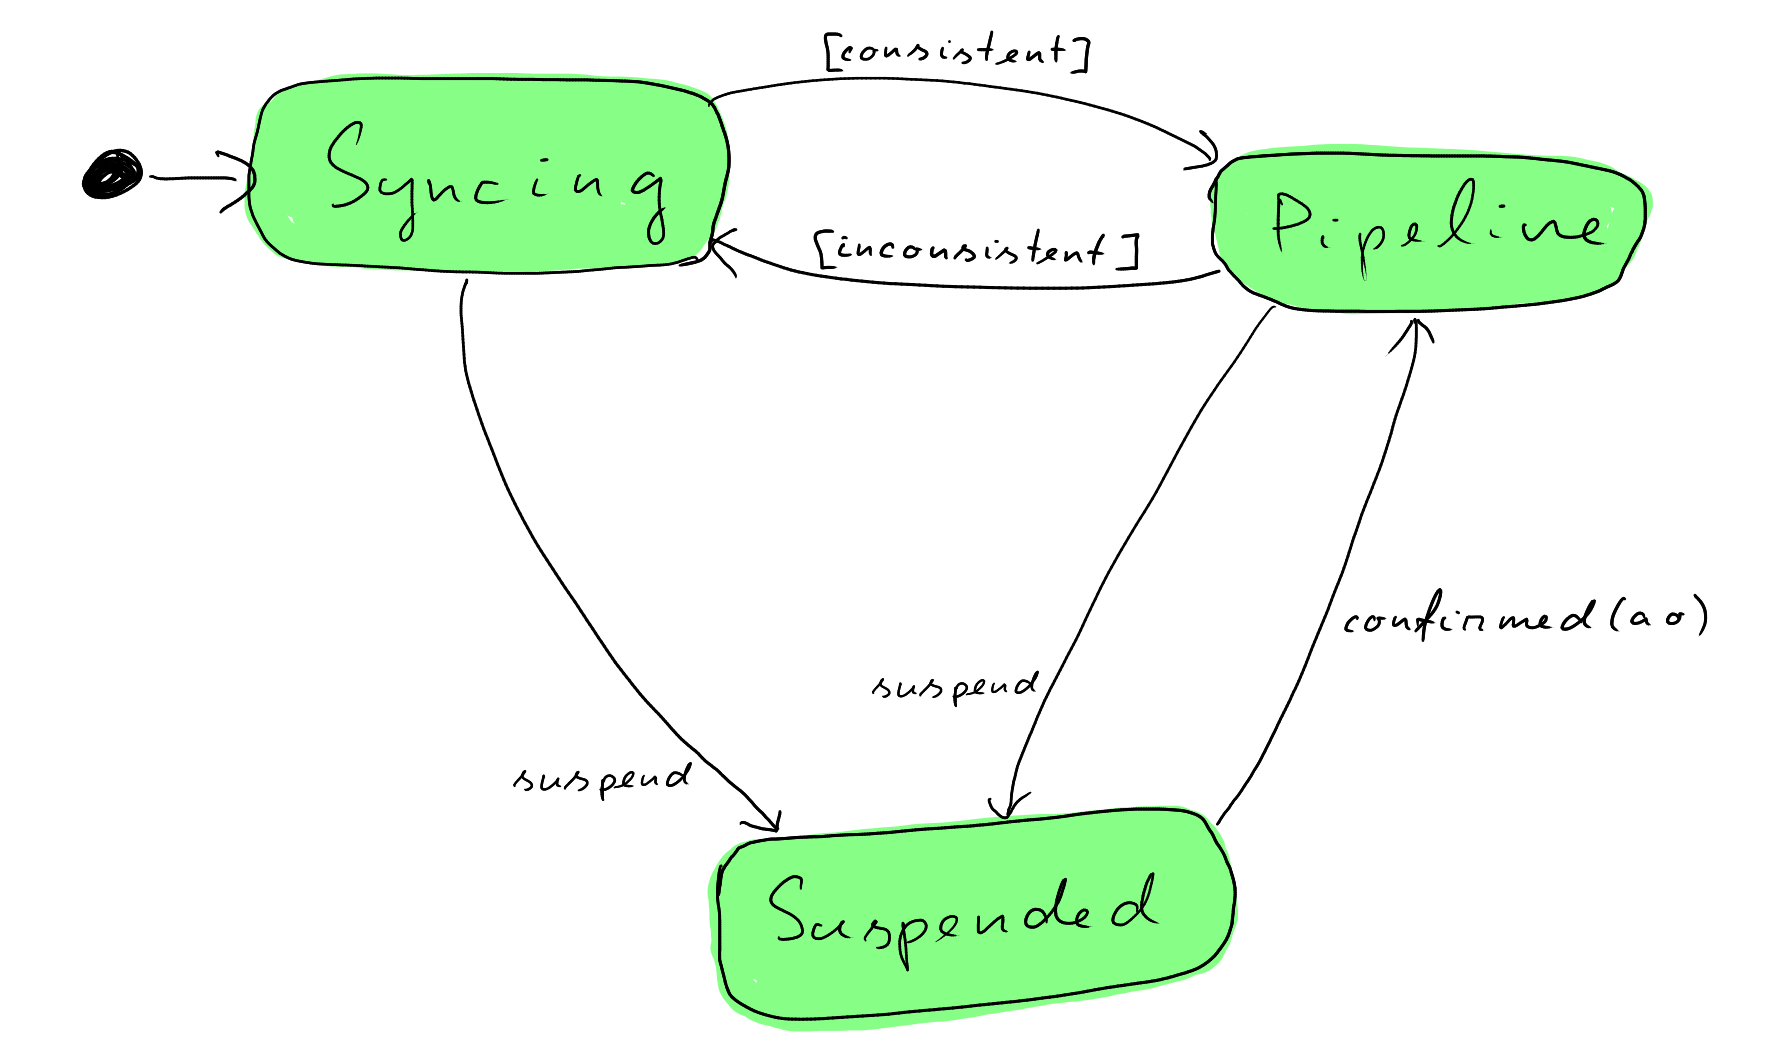 [consistent]
Syncing
Pipeline
[inconsistent]
confirmed(ao)
suspend
suspend
Suspended